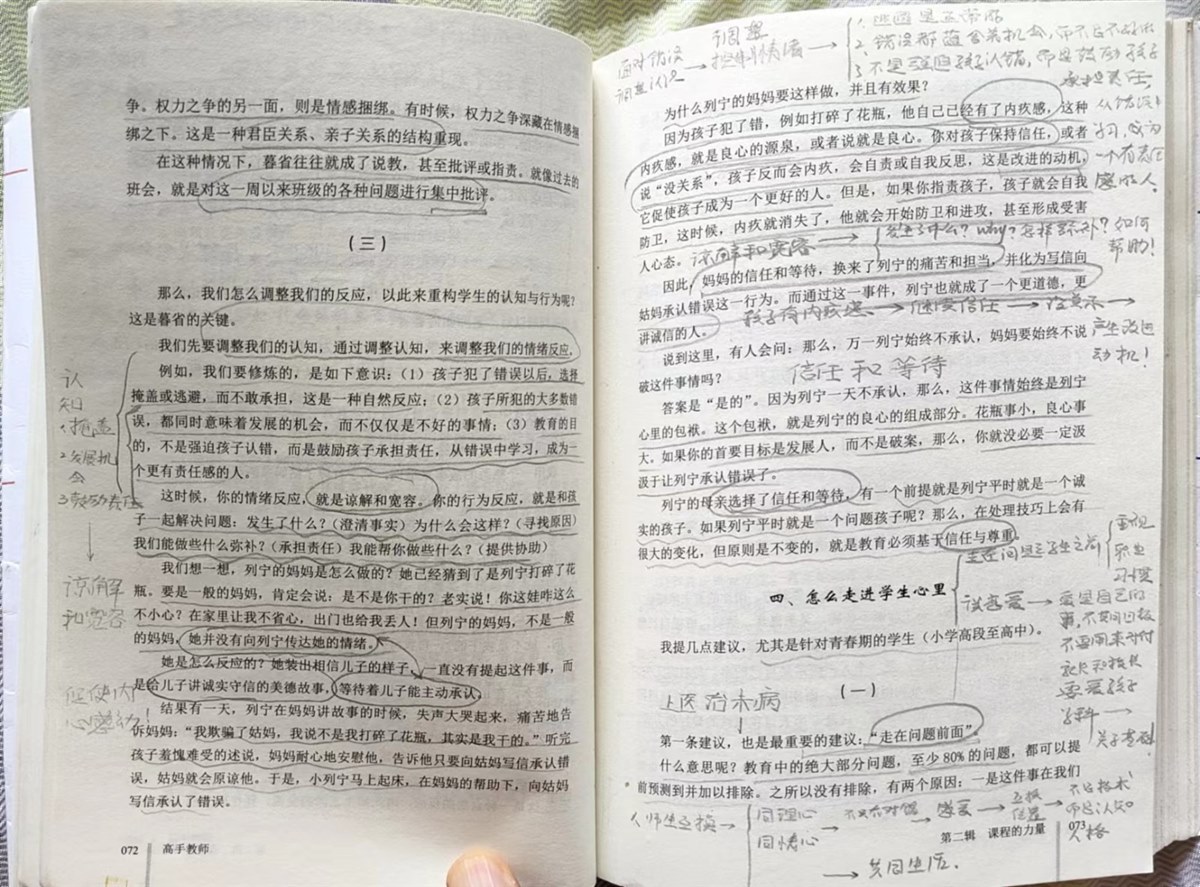 争。权力之争的另一面，则是情感捆绑。有时候，权力之争深藏在情感捆
绑之下。这是一种君臣关系、亲子关系的结构重现。
在这种情况下，暮省往往就成了说教，甚至批评或指责。就像过去的
班会，就是对这一周以来班级的各种问题进行集中批评。
（三）
那么，我们怎么调整我们的反应，以此来重构学生的认知与行为呢？
这是暮省的关键。
我们先要调整我们的认知，通过调整认知，来调整我们的情绪反应。
例如，我们要修炼的，是如下意识：（1）孩子犯了错误以后，选择
掩盖或逃避，而不敢承担，这是一种自然反应；（2）孩子所犯的大多数错
误，都同时意味着发展的机会，而不仅仅是不好的事情；（3）教育的目
的，不是强迫孩子认错，而是鼓励孩子承担责任，从错误中学习，成为一
个更有责任感的人。
这时候，你的情绪反应，就是谅解和宽容。你的行为反应，就是和孩
子一起解决问题：发生了什么？（澄清事实）为什么会这样？（寻找原因）
我们能做些什么弥补？（承担责任）我能帮你做些什么？（提供协助）
我们想一想，列宁的妈妈是怎么做的？她已经猜到了是列宁打碎了花
瓶。要是一般的妈妈，肯定会说：是不是你干的？老实说！你这娃咋这么
不小心？在家里让我不省心，出门也给我丢人！但列宁的妈妈，不是一般
的妈妈，她并没有向列宁传达她的情绪。
她是怎么反应的？她装出相信儿子的样子，一直没有提起这件事，而
是给儿子讲诚实守信的美德故事，等待着儿子能主动承认。
结果有一天，列宁在妈妈讲故事的时候，失声大哭起来，痛苦地告
诉妈妈：“我欺骗了姑妈，我说不是我打碎了花瓶，其实是我干的。”听完
孩子羞愧难受的述说，妈妈耐心地安慰他，告诉他只要向姑妈写信承认错
误，姑妈就会原谅他。于是，小列宁马上起床，在妈妈的帮助下，向姑妈
写信承认了错误。
认
知
1.掩盖
2.发展机
会
谅解
和宽容
072 高手教师
调整
面对错误 → 控制情绪
调整认知
为什么列宁的妈妈要这样做，并且有效果？
因为孩子犯了错，例如打碎了花瓶，他自己已经有了内疚感，这种
内疚感，就是良心的源泉，或者说就是良心。你对孩子保持信任，或者
说“没关系”，孩子反而会内疚，会自责或自我反思，这是改进的动机，
它促使孩子成为一个更好的人。但是，如果你指责孩子，孩子就会自我
防卫，这时候，内疚就消失了，他就会开始防卫和进攻，甚至形成受害
人心态。
谅解和宽容 → 发生了什么？why？怎样弥补？如何
帮助！
因此，妈妈的信任和等待，换来了列宁的痛苦和担当，并化为写信向
姑妈承认错误这一行为。而通过这一事件，列宁也就成了一个更道德，更
讲诚信的人。
孩子有内疚感 →
产生改进
动机！
说到这里，有人会问：那么，万一列宁始终不承认，妈妈要始终不说
破这件事情吗？
信任和等待
答案是“是的”。因为列宁一天不承认，那么，这件事情始终是列宁
心里的包袱。这个包袱，就是列宁的良心的组成部分。花瓶事小，良心事
大。如果你的首要目标是发展人，而不是破案，那么，你就没必要一定汲
汲于让列宁承认错误了。
列宁的母亲选择了信任和等待，有一个前提就是列宁平时就是一个诚
实的孩子。如果列宁平时就是一个问题孩子呢？那么，在处理技巧上会有
很大的变化，但原则是不变的，就是教育必须基于信任与尊重。
四、怎么走进学生心里
我提几点建议，尤其是针对青春期的学生（小学高段至高中）。
（一）
上医治未病
第一条建议，也是最重要的建议：“走在问题前面”。
什么意思呢？教育中的绝大部分问题，至少80%的问题，都可以提
前预测到并加以排除。之所以没有排除，有两个原因：一是这件事在我们
同理心
同情心
→ 共同生活.
第二辑 课程的力量 073